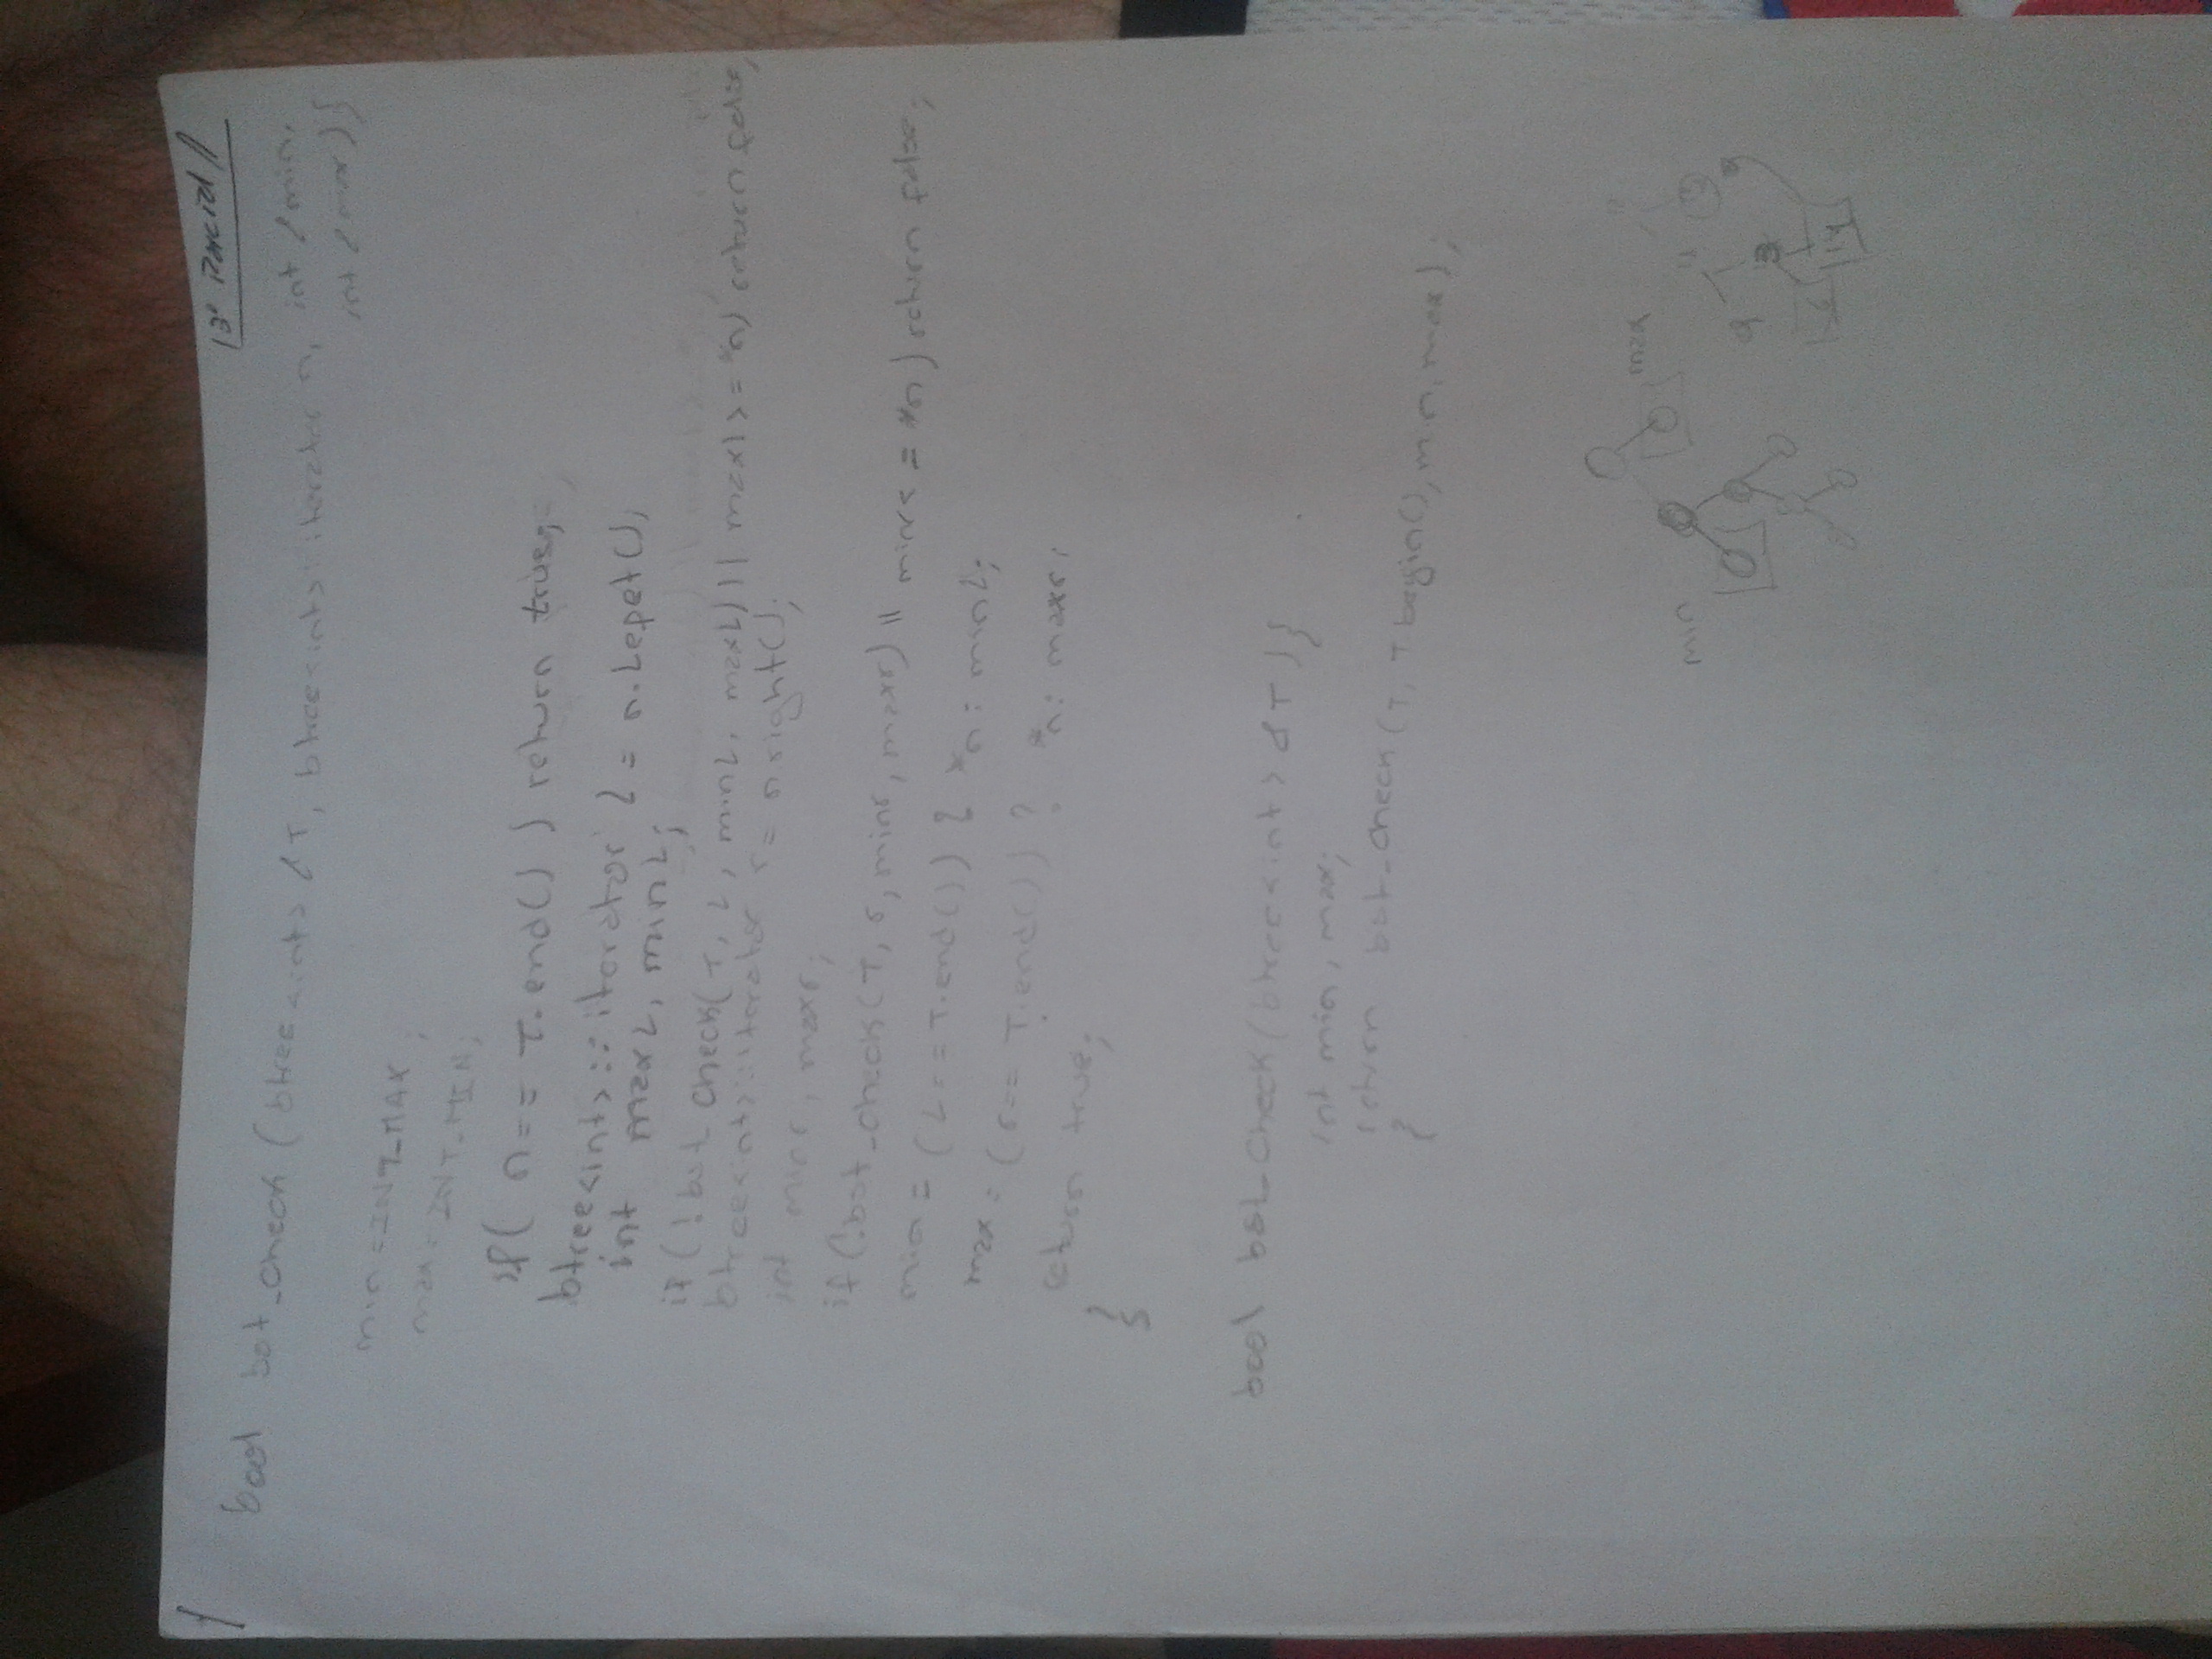 1
3° Parcial
bool bst_check (btree<int> &T, btree<int>::iterator n, int &min,
int &max) {
min = INT_MAX;
max = INT_MIN;
if( n == T.end() ) return true;
btree<int>::iterator L = n.Lepet();
int maxL, minL;
if (!bst_check(T, L, minL, maxL) || maxL >= *n) return false;
btree<int>::iterator r = n.right();
int minr, maxr;
if (!bst_check(T, r, minr, maxr) || minr <= *n) return false;
min = (L == T.end()) ? *n : minL;
max = (r == T.end()) ? *n : maxr;
return true;
}
bool bst_check(btree<int> &T) {
int min, max;
return bst_check(T, T.begin(), min, max);
}
max
min
9
3
14